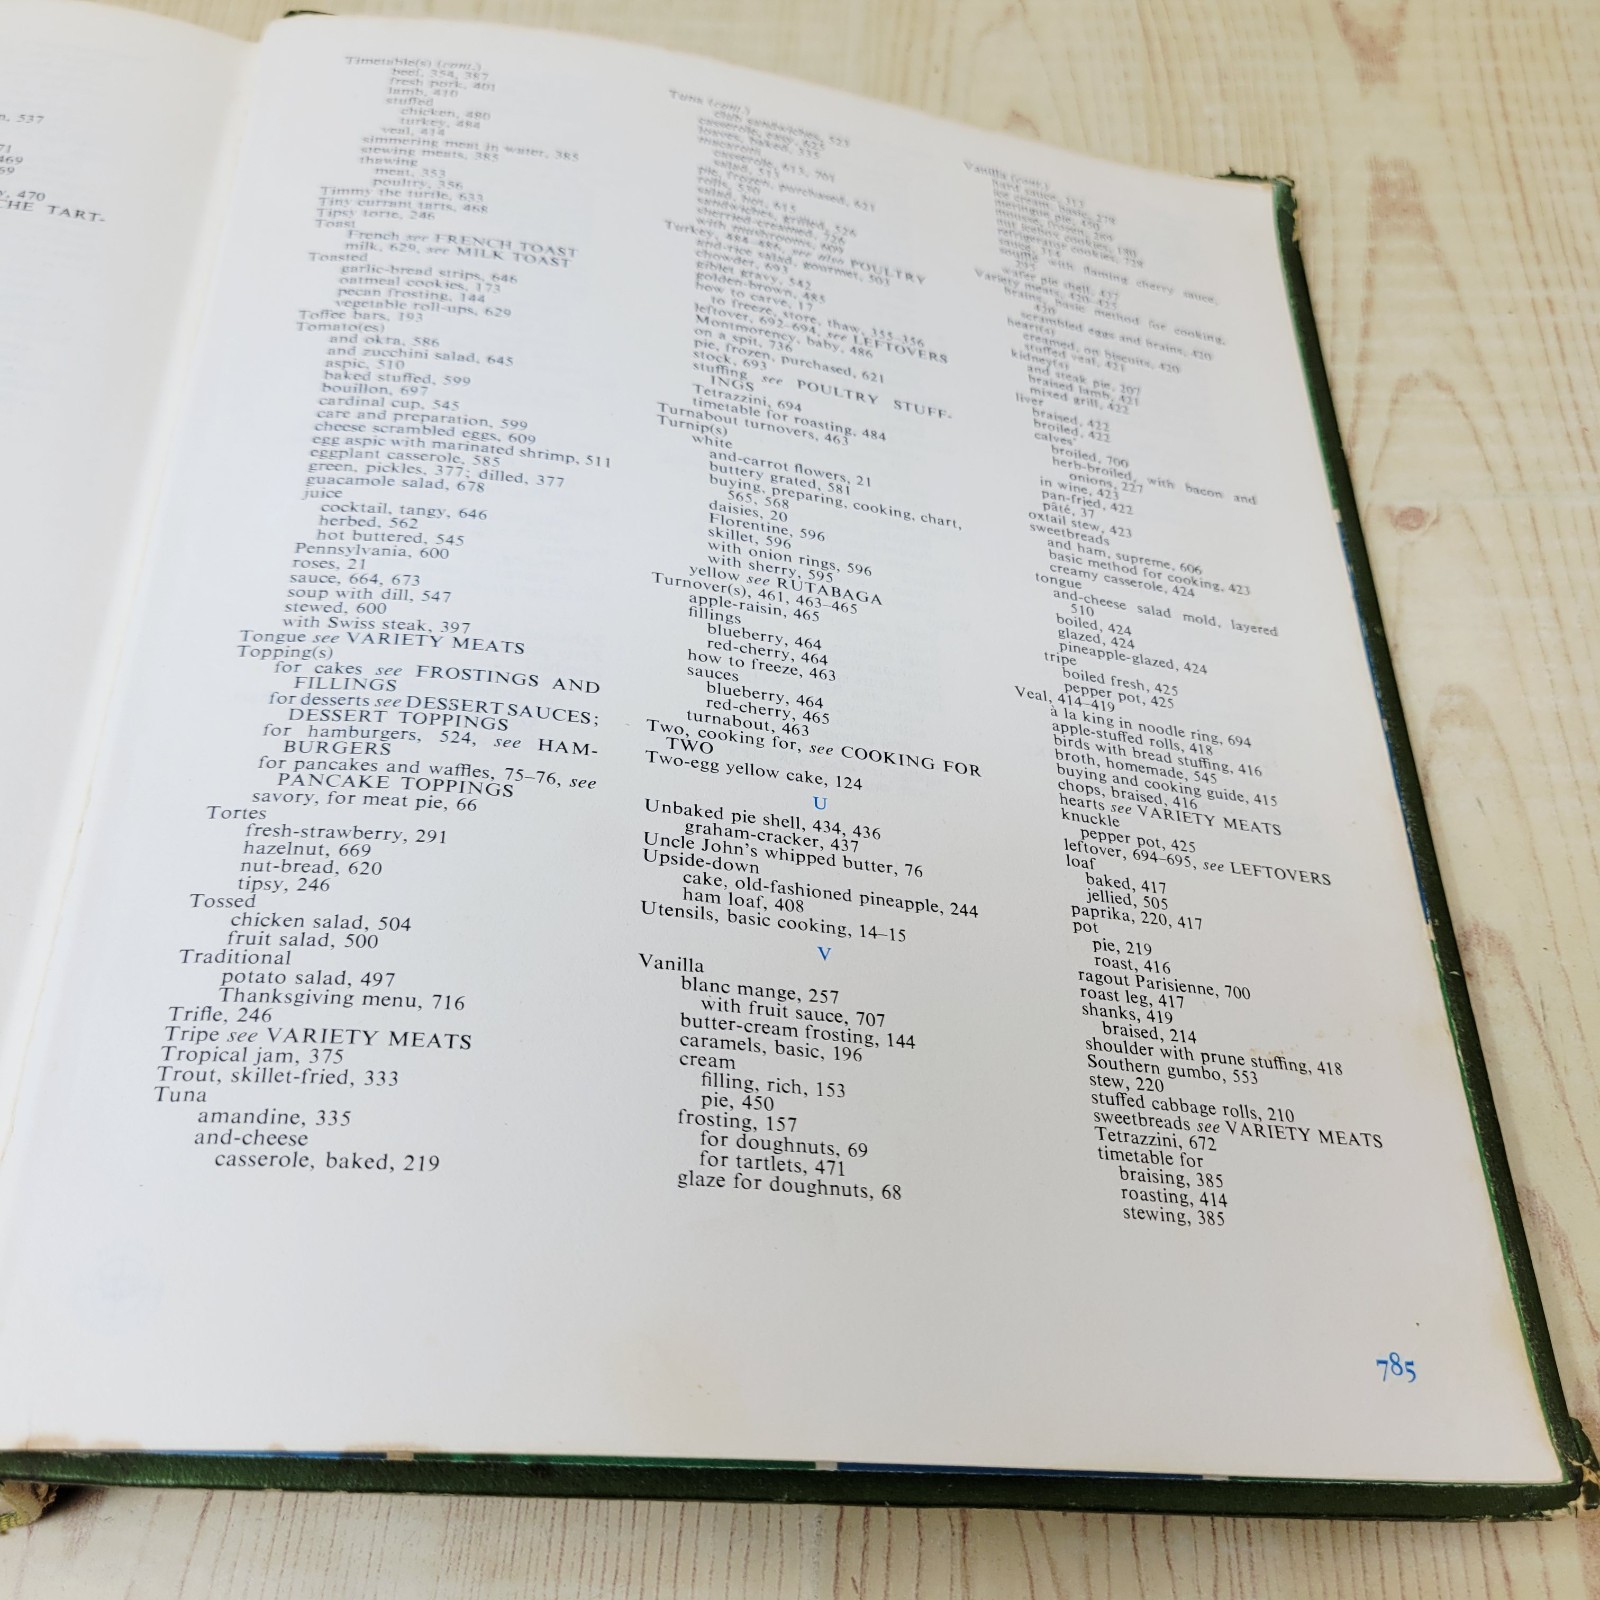 n, 537
71
469
69
y, 470
CHE TART-
Timetable(s) (cont.)
beef, 354, 387
fresh pork, 401
lamb, 410
stuffed
chicken, 480
turkey, 484
veal, 414
simmering meat in water, 385
stewing meats, 385
thawing
meat, 353
poultry, 356
Timmy the turtle, 633
Tiny currant tarts, 468
Tipsy torte, 246
Toast
French see FRENCH TOAST
milk, 629, see MILK TOAST
Toasted
garlic-bread strips, 646
oatmeal cookies, 173
pecan frosting, 144
vegetable roll-ups, 629
Toffee bars, 193
Tomato(es)
and okra, 586
and zucchini salad, 645
aspic, 510
baked stuffed, 599
bouillon, 697
cardinal cup, 545
care and preparation, 599
cheese scrambled eggs, 609
egg aspic with marinated shrimp, 511
eggplant casserole, 585
green, pickles, 377; dilled, 377
guacamole salad, 678
juice
cocktail, tangy, 646
herbed, 562
hot buttered, 545
Pennsylvania, 600
roses, 21
sauce, 664, 673
soup with dill, 547
stewed, 600
with Swiss steak, 397
Tongue see VARIETY MEATS
Topping(s)
for cakes see FROSTINGS AND
FILLINGS
for desserts see DESSERT SAUCES;
DESSERT TOPPINGS
for hamburgers, 524, see HAM-
BURGERS
for pancakes and waffles, 75–76, see
PANCAKE TOPPINGS
savory, for meat pie, 66
Tortes
fresh-strawberry, 291
hazelnut, 669
nut-bread, 620
tipsy, 246
Tossed
chicken salad, 504
fruit salad, 500
Traditional
potato salad, 497
Thanksgiving menu, 716
Trifle, 246
Tripe see VARIETY MEATS
Tropical jam, 375
Trout, skillet-fried, 333
Tuna
amandine, 335
and-cheese
casserole, baked, 219
Tuna (cont.)
club sandwiches, 525
casserole, easy, 621
loaves, baked, 335
macaroni
casserole, 615, 701
salad, 513
pie, frozen, purchased, 621
rolls, 530
salad, hot, 615
sandwiches, grilled, 526
sherried-creamed, 726
with mushrooms, 609
Turkey, 484–486, see also POULTRY
and-rice salad, gourmet, 503
chowder, 693
giblet gravy, 542
golden-brown, 485
how to carve, 17
to freeze, store, thaw, 355–356
leftover, 692–694, see LEFTOVERS
Montmorency, baby, 486
on a spit, 736
pie, frozen, purchased, 621
stock, 693
stuffing see POULTRY STUFF-
INGS
Tetrazzini, 694
timetable for roasting, 484
Turnabout turnovers, 463
Turnip(s)
white
and-carrot flowers, 21
buttery grated, 581
buying, preparing, cooking, chart,
565, 568
daisies, 20
Florentine, 596
skillet, 596
with onion rings, 596
with sherry, 595
yellow see RUTABAGA
Turnover(s), 461, 463–465
apple-raisin, 465
fillings
blueberry, 464
red-cherry, 464
how to freeze, 463
sauces
blueberry, 464
red-cherry, 465
turnabout, 463
Two, cooking for, see COOKING FOR
TWO
Two-egg yellow cake, 124
U
Unbaked pie shell, 434, 436
graham-cracker, 437
Uncle John's whipped butter, 76
Upside-down
cake, old-fashioned pineapple, 244
ham loaf, 408
Utensils, basic cooking, 14–15
V
Vanilla
blanc mange, 257
with fruit sauce, 707
butter-cream frosting, 144
caramels, basic, 196
cream
filling, rich, 153
pie, 450
frosting, 157
for doughnuts, 69
for tartlets, 471
glaze for doughnuts, 68
Vanilla (cont.)
hard sauce, 313
ice cream, basic,
meringue pie, 450
mousse, frozen,
nut icebox cookies, 190
refrigerator cookies,
sauce, 314
soufflé with flaming cherry sauce,
295
wafer pie shell, 437
Variety meats, 420–425
brains, basic method for cooking,
420
scrambled eggs and brains, 420
heart(s)
creamed, on biscuits, 420
stuffed veal, 421
kidney(s)
and steak pie, 207
braised lamb, 421
mixed grill, 422
liver
braised, 422
broiled, 422
calves'
broiled, 700
herb-broiled, with bacon and
onions, 227
in wine, 423
pan-fried, 422
pâté, 37
oxtail stew, 423
sweetbreads
and ham, supreme, 606
basic method for cooking, 423
creamy casserole, 424
tongue
and-cheese salad mold, layered
510
boiled, 424
glazed, 424
pineapple-glazed, 424
tripe
boiled fresh, 425
pepper pot, 425
Veal, 414–419
à la king in noodle ring, 694
apple-stuffed rolls, 418
birds with bread stuffing, 416
broth, homemade, 545
buying and cooking guide, 415
chops, braised, 416
hearts see VARIETY MEATS
knuckle
pepper pot, 425
leftover, 694–695, see LEFTOVERS
loaf
baked, 417
jellied, 505
paprika, 220, 417
pot
pie, 219
roast, 416
ragout Parisienne, 700
roast leg, 417
shanks, 419
braised, 214
shoulder with prune stuffing, 418
Southern gumbo, 553
stew, 220
stuffed cabbage rolls, 210
sweetbreads see VARIETY MEATS
Tetrazzini, 672
timetable for
braising, 385
roasting, 414
stewing, 385
785